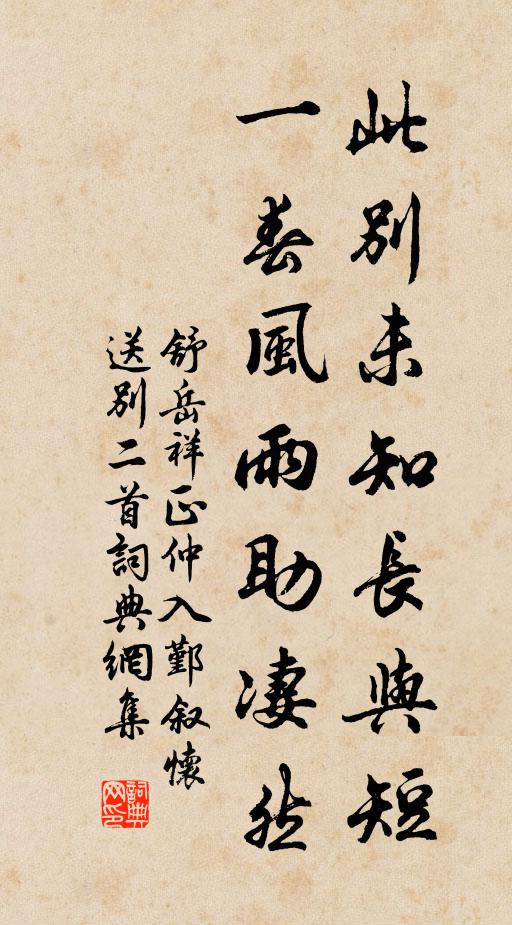 此別未知長與短
一春風雨助凄然
舒岳祥正仲入鄞叙懷
送别二首詞典網集
詞典網印